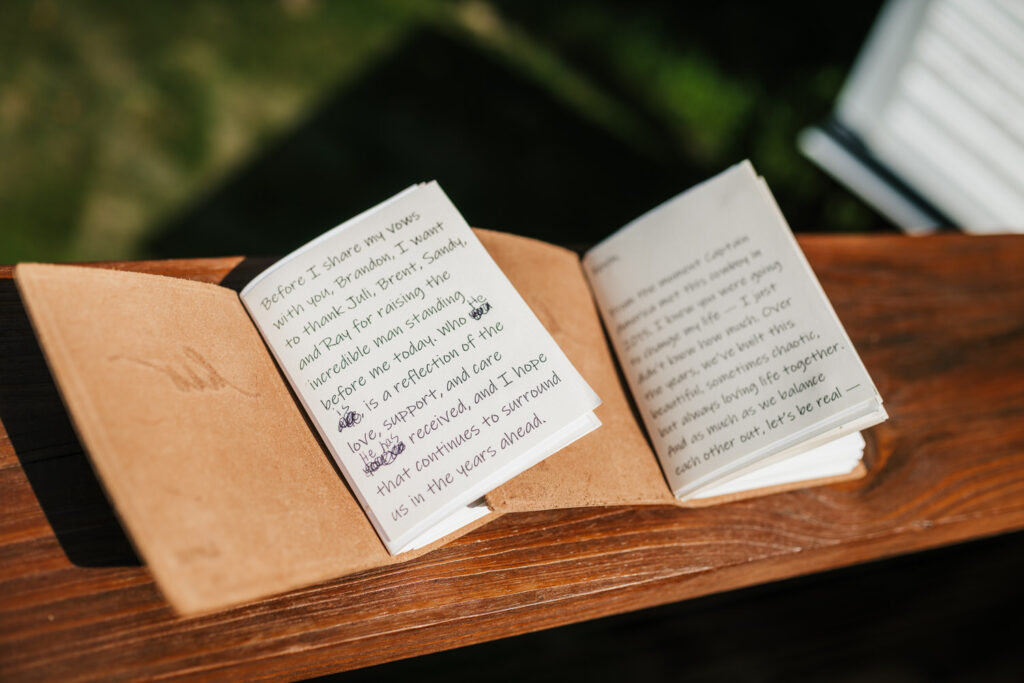 Before I share my vows
with you, Brandon, I want
to thank Juli, Brent, Sandy,
and Ray for raising the
incredible man standing
before me today. Who He
is is a reflection of the
love, support, and care
He has received, and I hope
that continues to surround
us in the years ahead.
From the moment Captain
America met this cowboy in
I knew you were going
to change my life — I just
didn't know how much. Over
the years, we've built this
beautiful, sometimes chaotic,
but always loving life together.
And as much as we balance
each other out, let's be real —